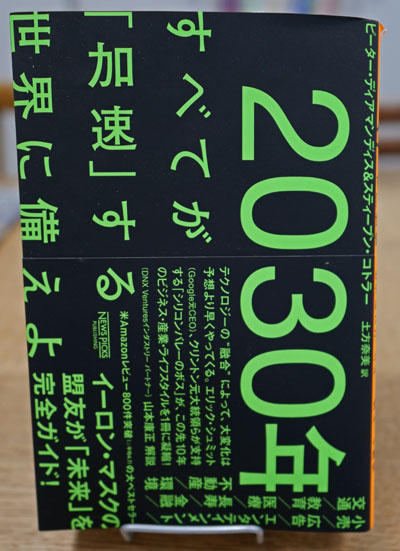 ピーター・ディアマンディス&スティーブン・コトラー
土方奈美 訳
2030年
すべてが
「加速」する
世界に備えよ
テクノロジーの“融合”によって、大変化は
予想より早くやってくる。エリック・シュミット
(Google元CEO)、クリントン元大統領らが支持
する「シリコンバレーのボス」が、この先10年
のビジネス・産業・ライフスタイルを1冊に凝縮!
(DNX Ventures インダストリー パートナー) 山本康正 解説
小売/広告/
エンタメ/
交通/教育/
医療/長寿/
不動産/
金融/環境
米Amazonレビュー800件突破の大ベストセラー
イーロン・マスクの
盟友が「未来」を
完全ガイド!
NEWS PICKS
PUBLISHING